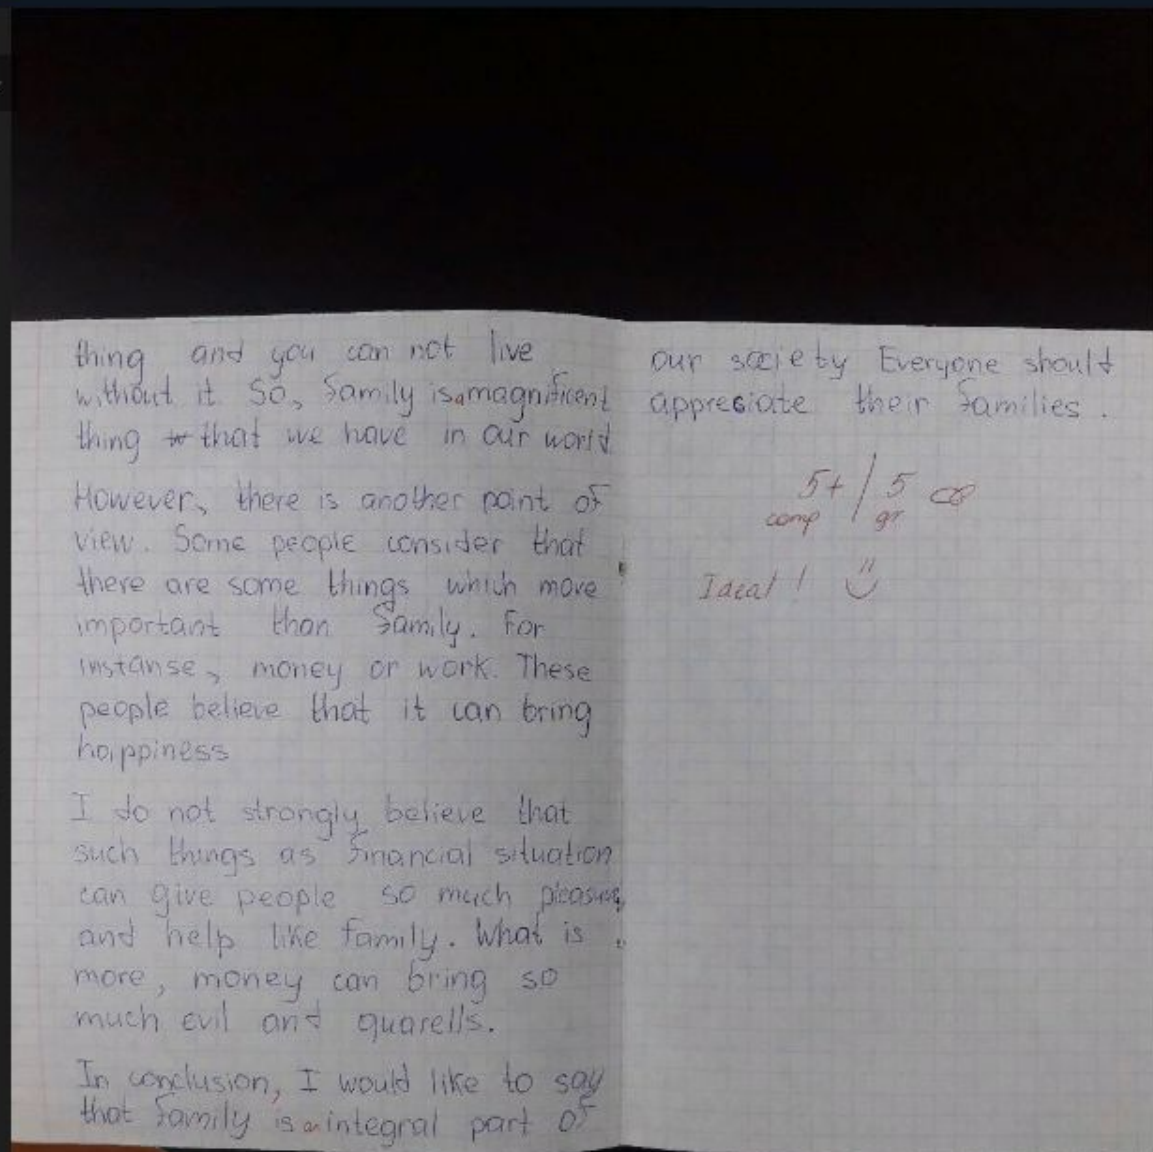 thing and you can not live
without it. So, family is a magnificent
thing that we have in our world
However, there is another point of
view. Some people consider that
there are some things which more
important than family. For
instanse, money or work. These
people believe that it can bring
happiness
I do not strongly believe that
such things as financial situation
can give people so much pleasure
and help like family. What is
more, money can bring so
much evil and quarells.
In conclusion, I would like to say
that family is an integral part of
our society Everyone should
appresiate their families.
5+ / 5
comp gr
Ideal!